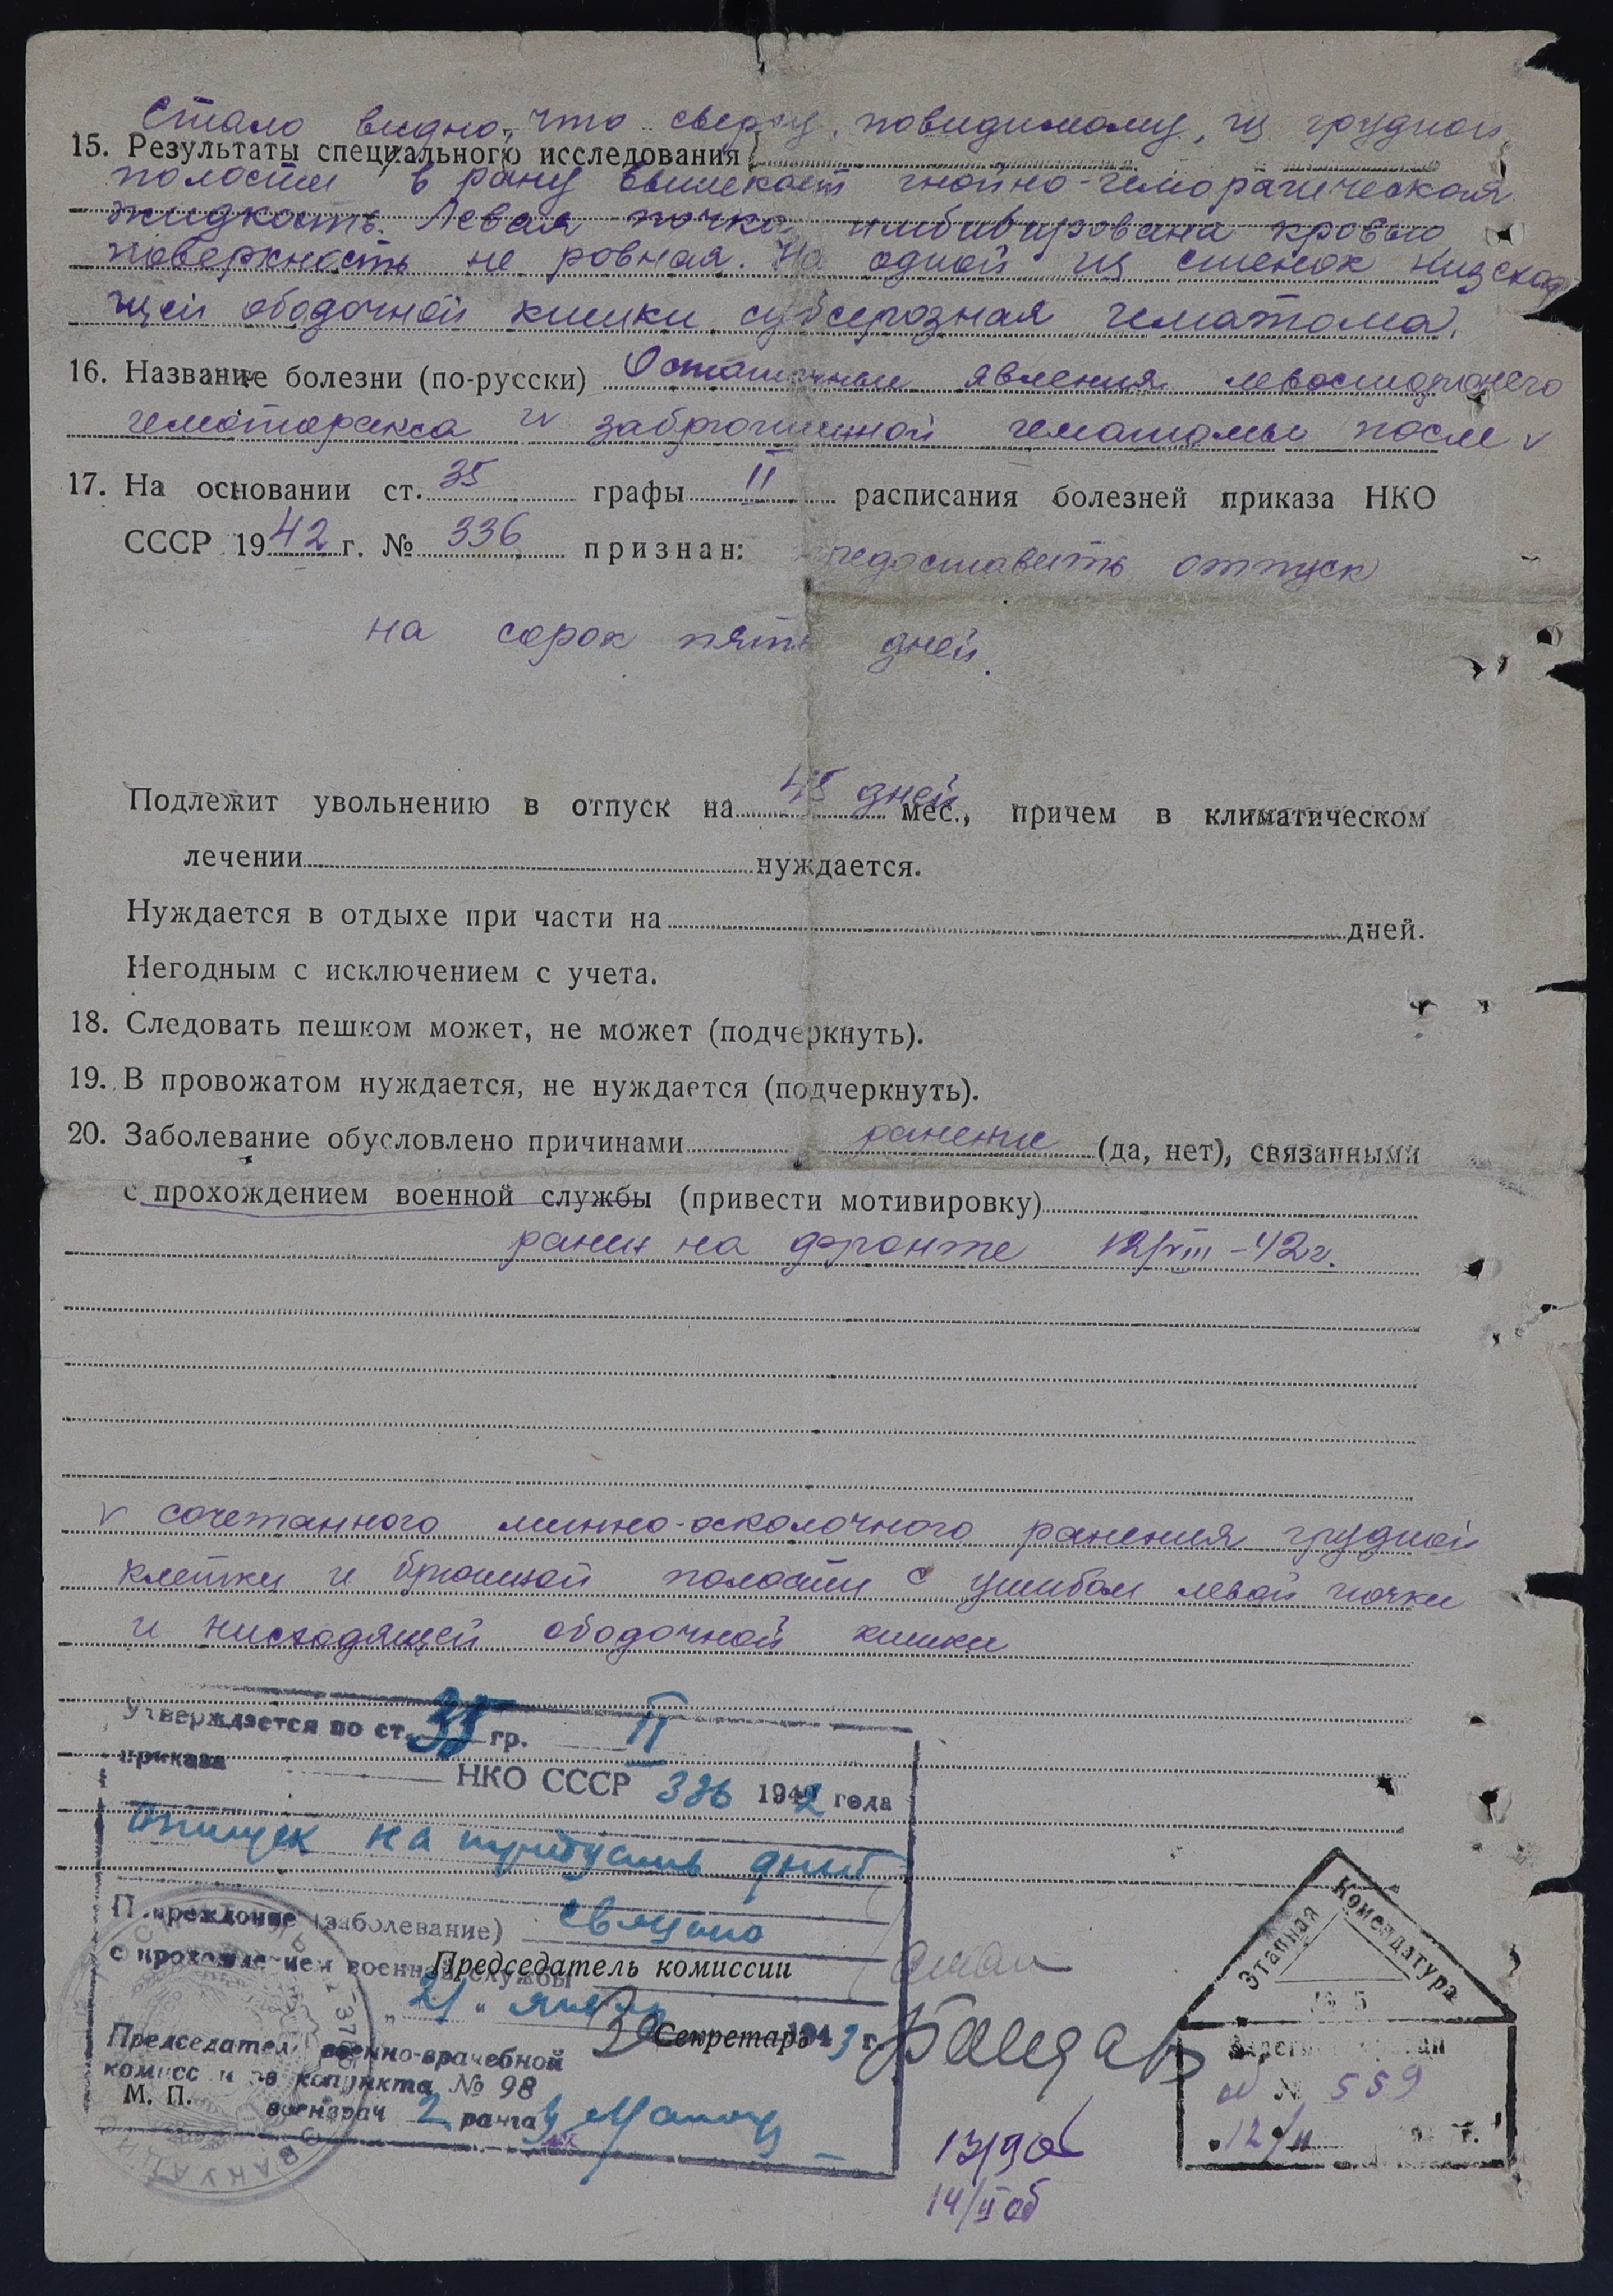 Стало видно, что сверху, повидимому, из грудной
15. Результаты специального исследования
полости в рану вытекает гнойно-геморагическая
жидкость. Левая почка имбибирована кровью
поверхность не ровная. На одной из стенок низходя
щей ободочной кишки субсерозная гематома.
16. Название болезни (по-русски) Остаточные явления левостороннего
гемоторакса и забрюшинной гематомы после v
17. На основании ст. 35 графы II расписания болезней приказа НКО
СССР 1942 г. № 336 признан: предоставить отпуск
на сорок пять дней.
Подлежит увольнению в отпуск на 45 дней мес., причем в климатическом
лечении нуждается.
Нуждается в отдыхе при части на дней.
Негодным с исключением с учета.
18. Следовать пешком может, не может (подчеркнуть).
19. В провожатом нуждается, не нуждается (подчеркнуть).
20. Заболевание обусловлено причинами ранение (да, нет), связанными
с прохождением военной службы (привести мотивировку)
ранен на фронте 12/VIII-42г.
v сочетанного минно-осколочного ранения грудной
клетки и брюшной полости с ушибом левой почки
и нисходящей ободочной кишки
Утверждается по ст. 35 гр. II
приказа НКО СССР 336 1942 года
Отпуск на тридцать дней
Повреждение (заболевание) связано
с прохождением военной службы
Председатель комиссии
"21" января 1943 г.
Секретарь
Председатель военно-врачебной
комиссии эвакопункта № 98
М. П.
военврач 2 ранга
Этапная Комендатура
№ 5
Зарегистрирован
№ 559
12/II г.
13/II об
14/II об